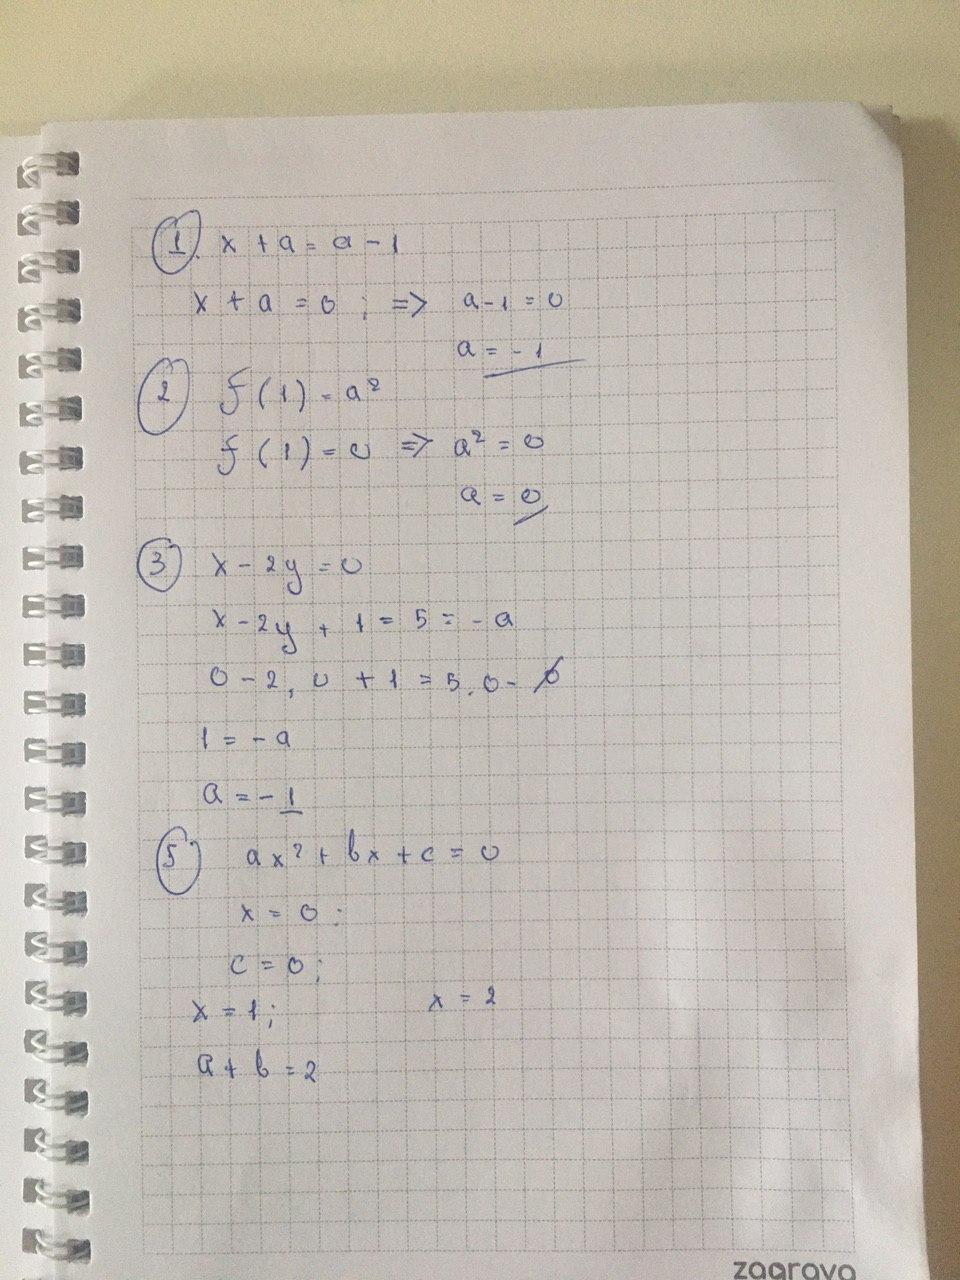 1. x + a = a - 1
x + a = 0 ; => a - 1 = 0
a = - 1
2 f(1) = a²
f(1) = 0 => a² = 0
a = 0
3 x - 2y = 0
x - 2y + 1 = 5 = - a
0 - 2, 0 + 1 = 5.0 -
1 = - a
a = - 1
5 ax² + bx + c = 0
x = 0 ;
c = 0 ;
x = 1 ; x = 2
a + b = 2
zaarava